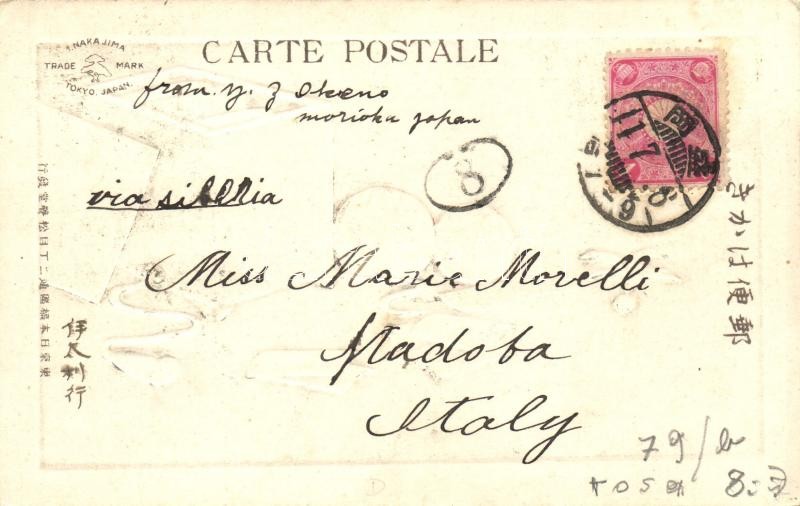 T. NAKAJIMA
TRADE MARK
TOKYO. JAPAN.
CARTE POSTALE
from. y. z Okeno
morioka japan
via siberia
8
Miss Marie Morelli
Madoba
Italy
郵便はかき
伊太利行
東京日本橋區通二丁目松聲堂發行
盛岡
11 7
79/b
D